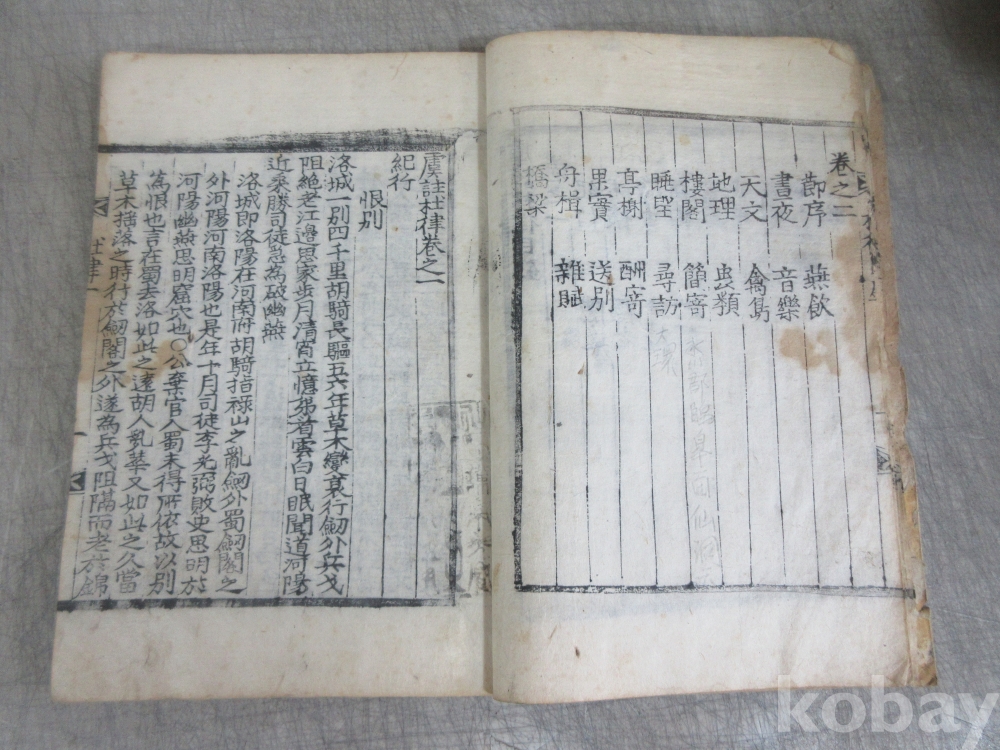 卷之二
節序 燕飮
晝夜 音樂
天文 禽鳥
地理 虫類
樓閣 簡寄
眺望 尋訪
亭榭 酬寄
果實 送別
舟楫 雜賦
橋梁
虞註杜律卷之一
紀行
恨別
洛城一別四千里胡騎長驅五六年草木變衰行劒外兵戈
阻絶老江邊思家步月淸宵立憶弟看雲白日眠聞道河陽
近乘勝司徒急為破幽燕
洛城即洛陽在河南府胡騎指祿山之亂劒外蜀劒閣之
外河陽河南洛陽也是年十月司徒李光弼敗史思明於
河陽幽燕思明窟穴也○公棄官入蜀未得所依故以別
為恨也言在蜀去洛如此之遠胡人亂華又如此之久當
草木搖落之時行於劒閣之外遂為兵戈阻隔而老於錦
杜律一
kobay